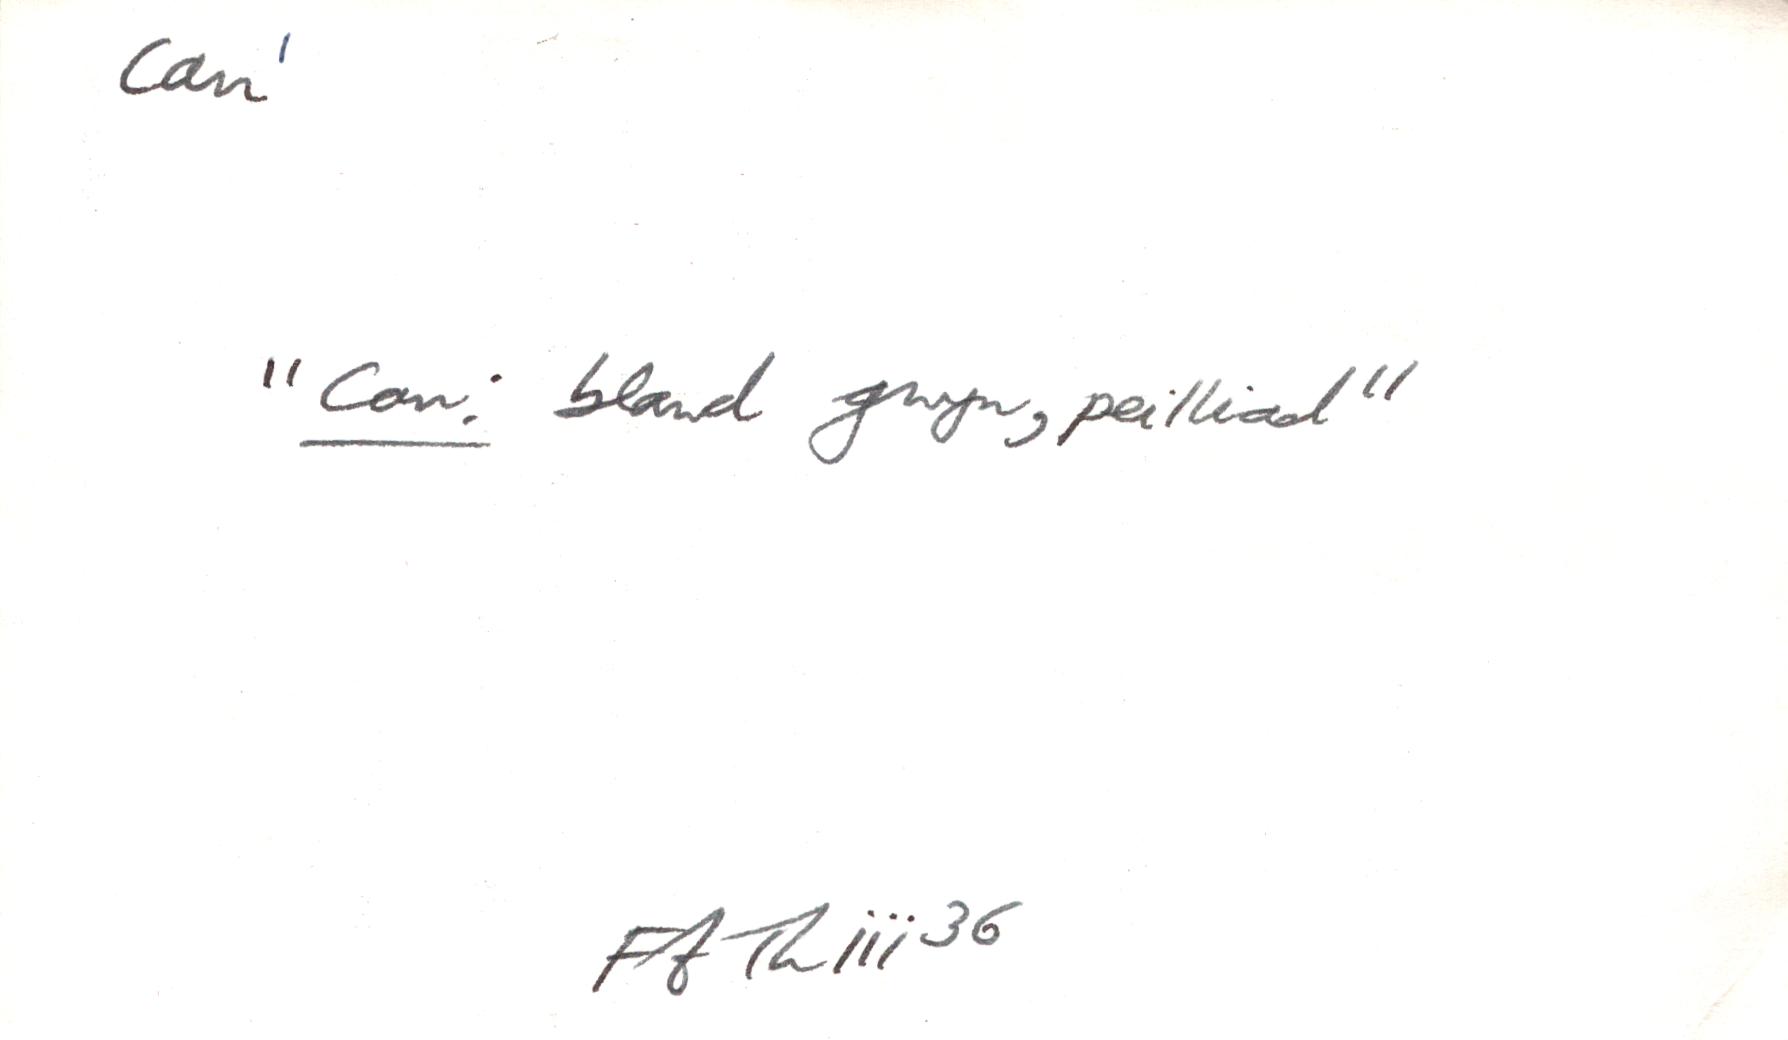 Can¹
"Can: bland gwyn, peilliad"
Ff Th iii 36